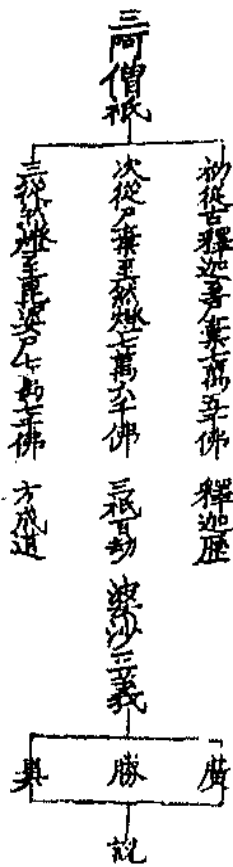 三阿僧祇
初從古釋迦至尸棄七萬五千佛 釋迦歷
次從尸棄至然燈七萬六千佛 三祇百劫
三從然燈至毘婆尸七萬七千佛 方成道
婆沙三義
廣
勝
異
說